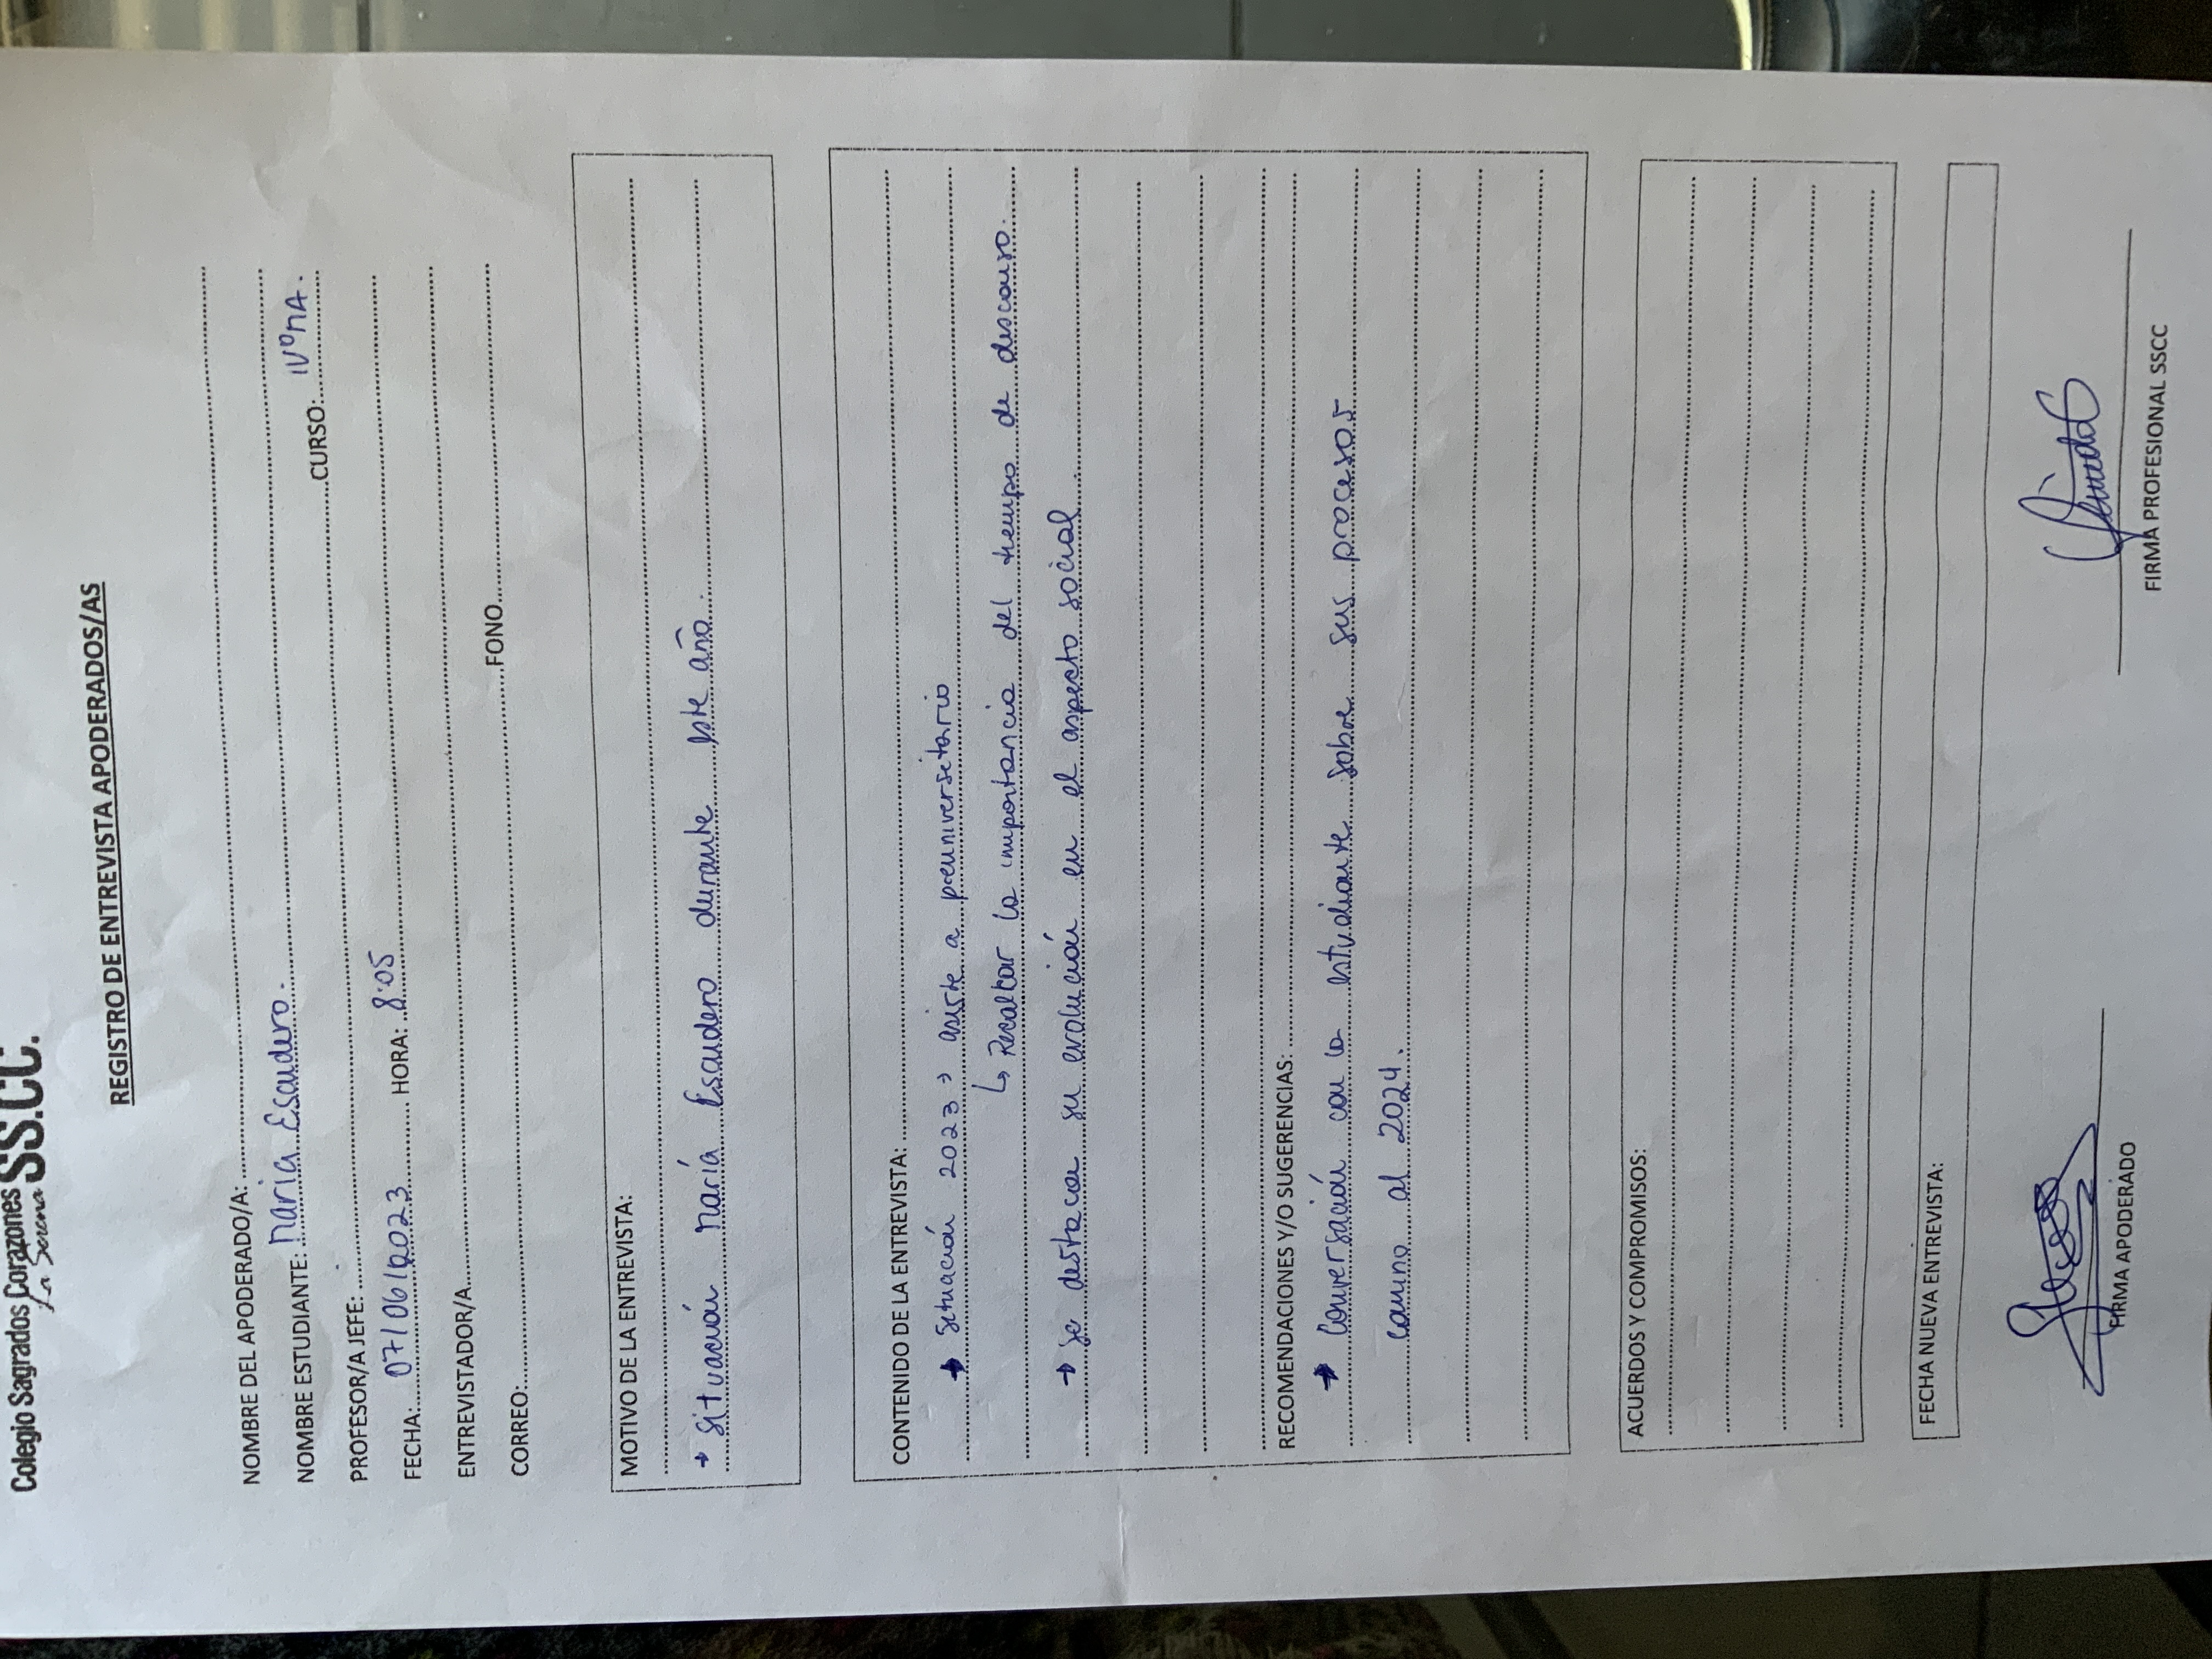 Colegio Sagrados Corazones SS.CC.
La Serena
REGISTRO DE ENTREVISTA APODERADOS/AS
NOMBRE DEL APODERADO/A:
NOMBRE ESTUDIANTE: María Escudero. CURSO: IVºMA.
PROFESOR/A JEFE:
FECHA: 07/06/2023 HORA: 8:05
ENTREVISTADOR/A
CORREO: FONO
MOTIVO DE LA ENTREVISTA:
→ Situación María Escudero durante este año.
CONTENIDO DE LA ENTREVISTA:
→ Situación 2023 → asiste a preuniversitario
↳ Recalcar la importancia del tiempo de descanso.
→ Se destaca su evolución en el aspecto social.
RECOMENDACIONES Y/O SUGERENCIAS:
→ Conversación con la estudiante sobre sus procesos
camino al 2024.
ACUERDOS Y COMPROMISOS:
FECHA NUEVA ENTREVISTA:
FIRMA APODERADO FIRMA PROFESIONAL SSCC